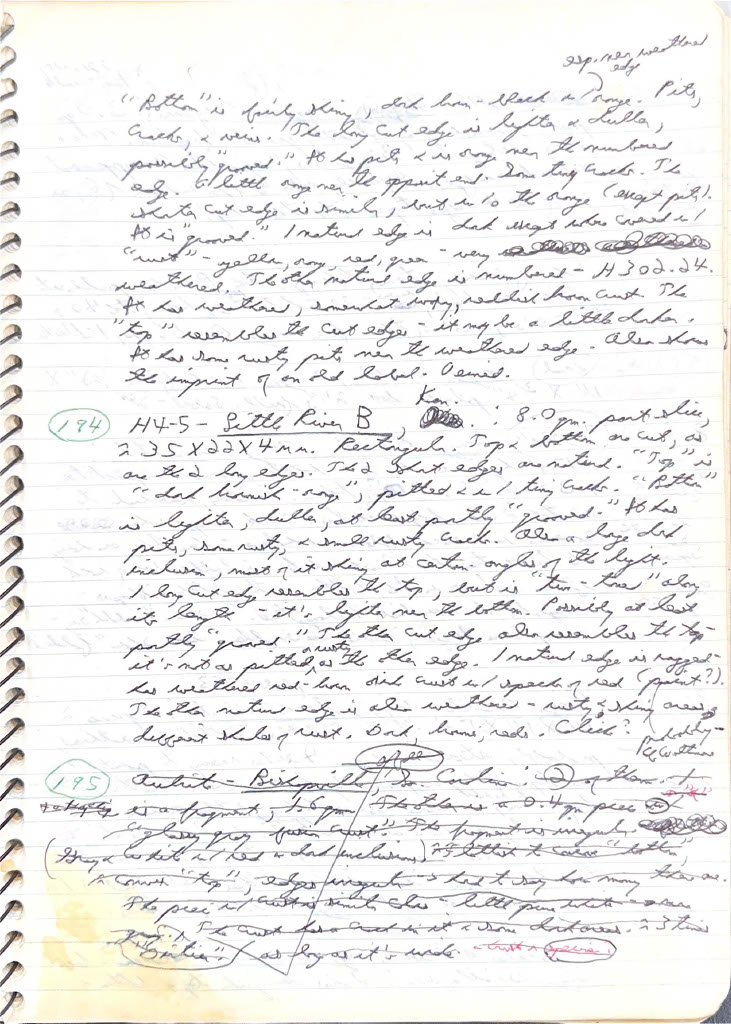 esp. near weathered
edge
"Bottom" is fairly shiny, dark brown-black w/ orange. Pits,
cracks, & veins. The long cut edge is lighter & duller,
possibly "grooved." It has pits & is orange near the numbered
edge. A little orange near the opposite end. Some tiny cracks. The
shorter cut edge is similar, but w/o the orange (except pits).
It is "grooved." 1 natural edge is dark except where covered w/
"rust" - yellow, orange, red, green - very
weathered. The other natural edge is numbered - H302.24.
It has weathered, somewhat reddish brown crust. The
"top" resembles the cut edges - it may be a little darker.
It has some rusty pits near the weathered edge. Also shows
the imprint of an old label. Oriented.
194 H4-5 - Little River B, Kan. : 8.0 gm. part slice,
≈ 35 X 22 X 4 mm. Rectangular. Top & bottom are cut, as
are the 2 long edges. The 2 short edges are natural. "Top" is
"dark brownish-orange", pitted & w/ tiny cracks. "Bottom"
is lighter, duller, at least partly "grooved." It has
pits, some rusty, & small rusty cracks. Also a large dark
inclusion, most of it shiny at certain angles of the light.
1 long cut edge resembles the top, but is "two-tone" along
its length - it's lighter near the bottom. Possibly at least
partly "grooved." The other cut edge also resembles the top -
it's not as pitted & rusty as the other edge. 1 natural edge is ragged -
has weathered red-brown dark crust w/ specks of red (paint?).
The other natural edge is also weathered - rusty & shiny areas,
different shades of rust. Dark, brown, reds. Click? Probably -
195 Aubrite - Bishopville, So. Carolina : 2 of them. 1
is a fragment, 1.6 gm. The other is a 0.4 gm piece w/
"glassy gray fusion crust". The fragment is irregular.
(Gray & white w/ red & dark inclusions)
a convex "top", edges irregular - hard to say how many there are.
The piece w/ crust is similar color - little pure white
The crust has a crack in it & some dark areas. ≈ 3 times
as long as it's wide. crust a specimen